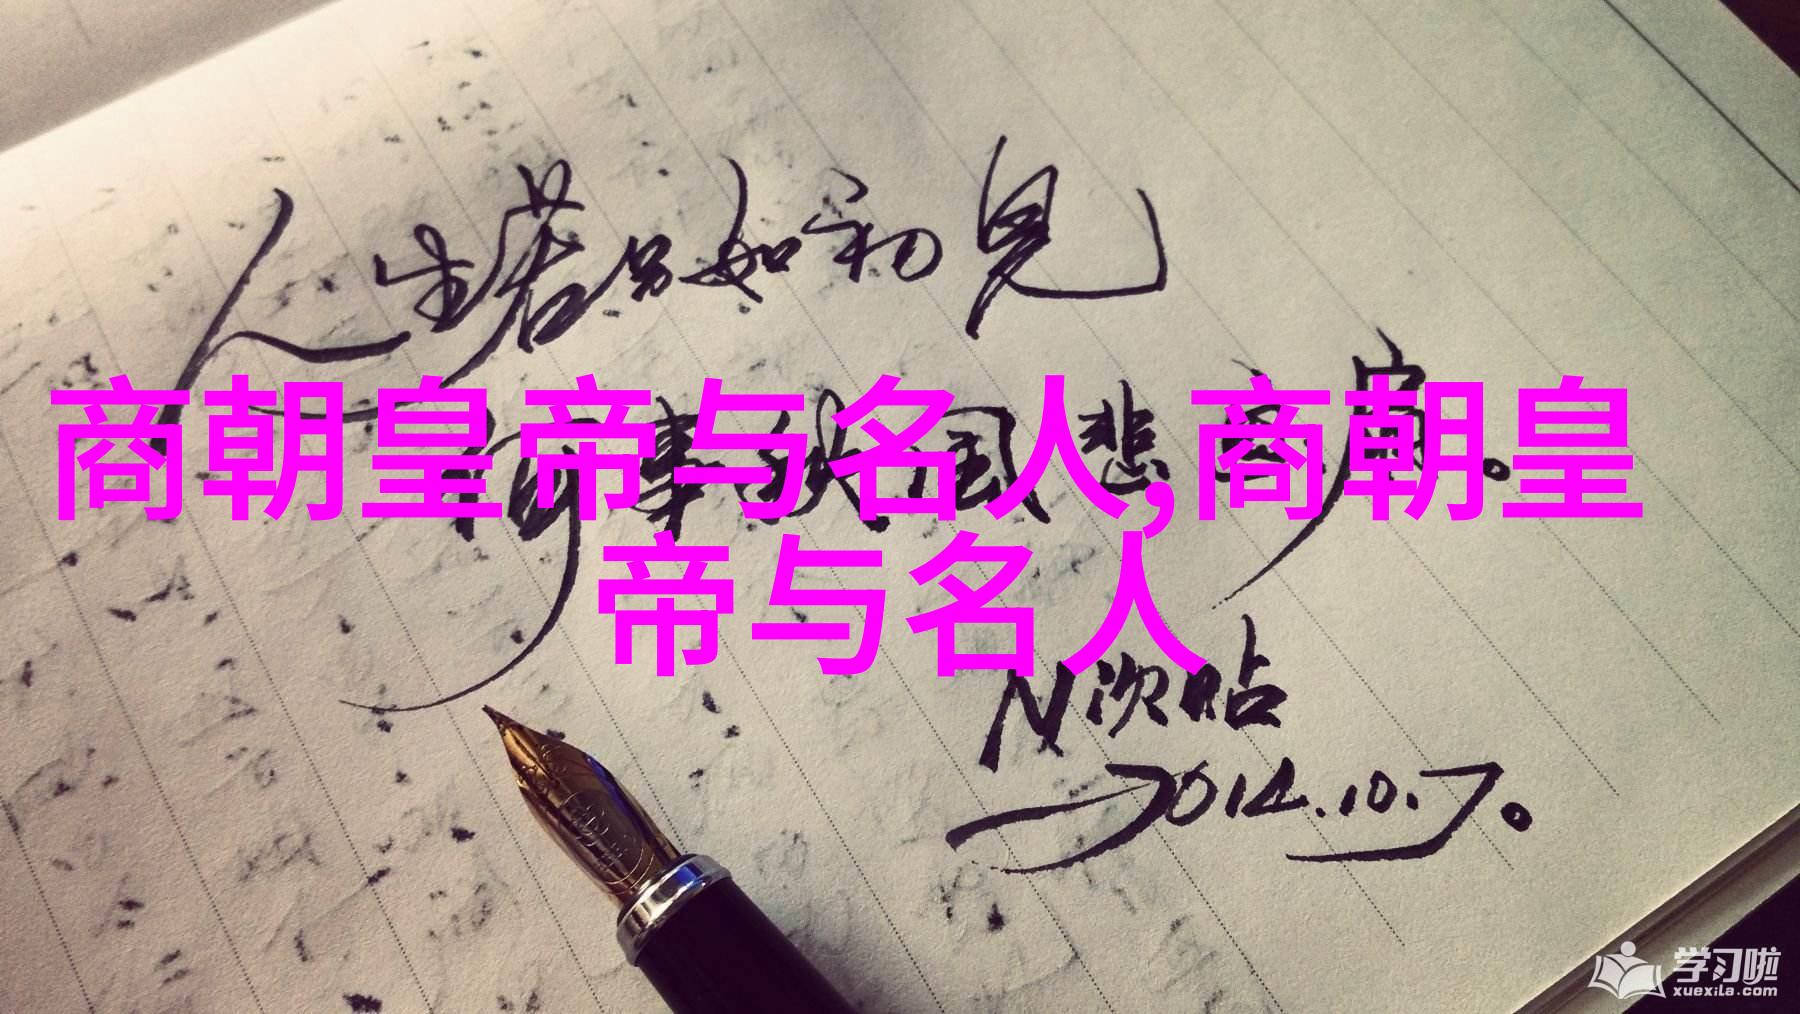 人生若只如初见
何事秋风悲画扇。
商朝皇帝与名人,商朝皇
帝与名人
N次贴
2014.10.7。
学习啦
xuexila.com